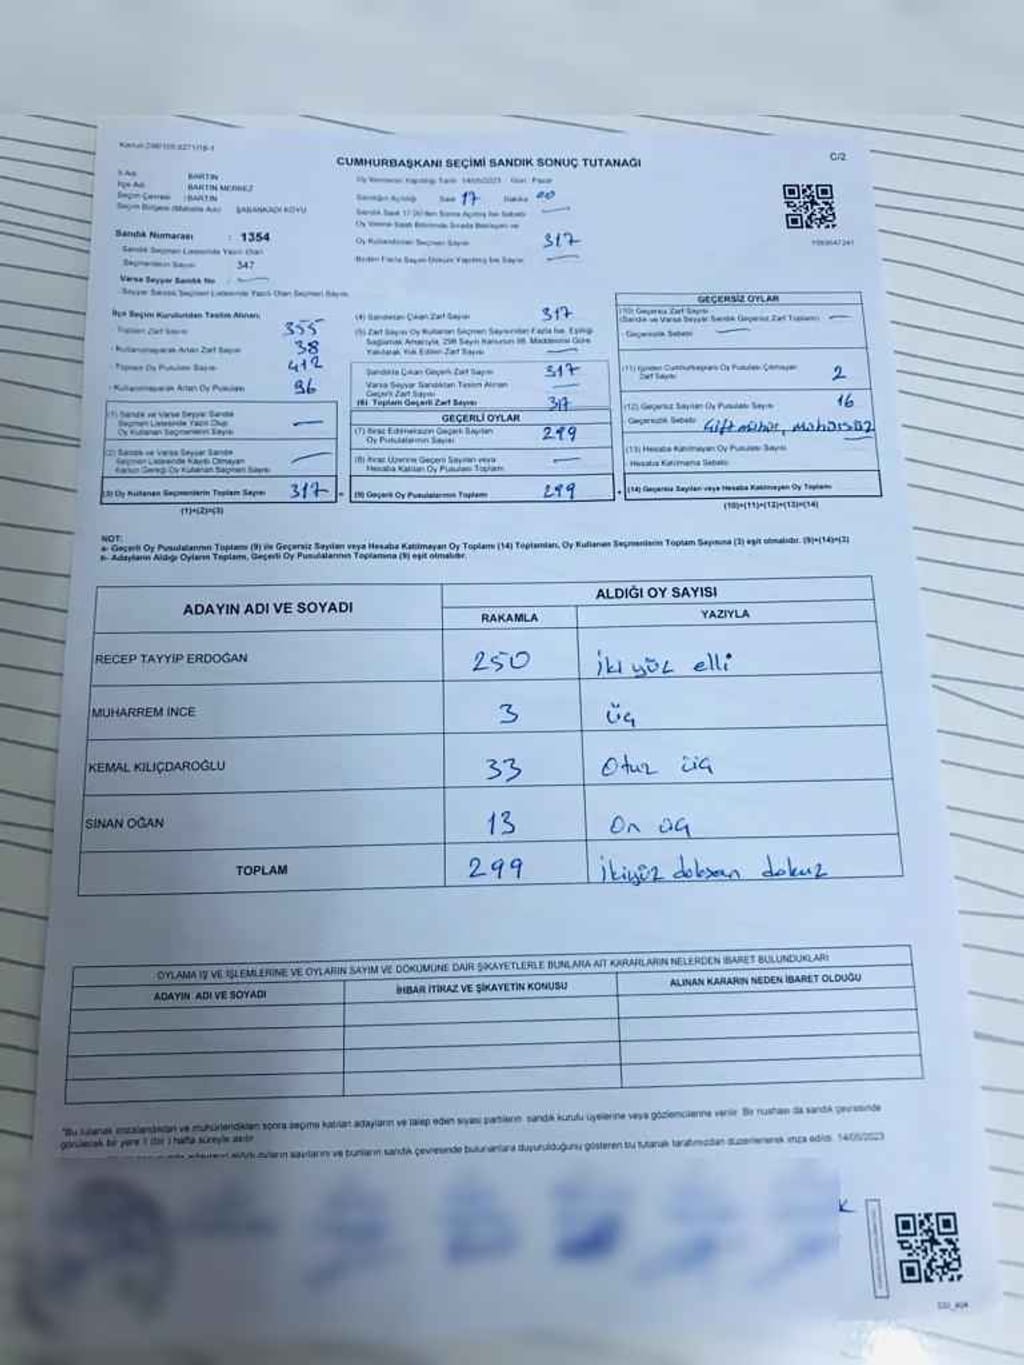 CUMHURBAŞKANI SEÇİMİ SANDIK SONUÇ TUTANAĞI
C/2
İl Adı : BARTIN
İlçe Adı : BARTIN MERKEZ
Seçim Çevresi : BARTIN
Seçim Bölgesi (Mahalle Adı) : ŞABANKADI KÖYÜ
Sandık Numarası : 1354
Sandık Seçmen Listesinde Yazılı Olan
Seçmenlerin Sayısı 347
Varsa Seyyar Sandık No : —
Seyyar Sandık Seçmen Listesinde Yazılı Olan Seçmen Sayısı
Oy Vermenin Yapıldığı Tarih: 14/05/2023 Gün: Pazar
Sandığın Açıldığı Saat 17 Dakika 00
Oy Kullandırılan Seçmen Sayısı 317
İlçe Seçim Kurulundan Teslim Alınan;
Toplam Zarf Sayısı 355
- Kullanılmayarak Artan Zarf Sayısı 38
- Toplam Oy Pusulası Sayısı 412
- Kullanılmayarak Artan Oy Pusulası 96
(1) Sandık ve Varsa Seyyar Sandık
Seçmen Listesinde Yazılı Olup
Oy Kullanan Seçmenlerin Sayısı —
(2) Sandık ve Varsa Seyyar Sandık
Seçmen Listesinde Kayıtlı Olmayan
Kanun Gereği Oy Kullanan Seçmen Sayısı —
(3) Oy Kullanan Seçmenlerin Toplam Sayısı 317
(1)+(2)=(3)
(4) Sandıktan Çıkan Zarf Sayısı 317
(5) Zarf Sayısı Oy Kullanan Seçmen Sayısından Fazla İse, Eşitliği
Sağlamak Amacıyla, 298 Sayılı Kanunun 98. Maddesine Göre
Yakılarak Yok Edilen Zarf Sayısı —
Sandıkta Çıkan Geçerli Zarf Sayısı 317
Varsa Seyyar Sandıktan Teslim Alınan
Geçerli Zarf Sayısı —
(6) Toplam Geçerli Zarf Sayısı 317
GEÇERLİ OYLAR
(7) İtiraz Edilmeksizin Geçerli Sayılan
Oy Pusulalarının Sayısı 299
(8) İtiraz Üzerine Geçerli Sayılan veya
Hesaba Katılan Oy Pusulası Toplamı —
(9) Geçerli Oy Pusulalarının Toplamı 299
GEÇERSİZ OYLAR
(10) Geçersiz Zarf Sayısı
(Sandık ve Varsa Seyyar Sandık Geçersiz Zarf Toplamı) —
- Geçersizlik Sebebi: —
(11) İçinden Cumhurbaşkanı Oy Pusulası Çıkmayan
Zarf Sayısı 2
(12) Geçersiz Sayılan Oy Pusulası Sayısı 16
Geçersizlik Sebebi: Çift mühür, mühürsüz
(13) Hesaba Katılmayan Oy Pusulası Sayısı
Hesaba Katılmama Sebebi:
(14) Geçersiz Sayılan veya Hesaba Katılmayan Oy Toplamı
(10)+(11)+(12)+(13)=(14)
NOT:
a- Geçerli Oy Pusulalarının Toplamı (9) ile Geçersiz Sayılan veya Hesaba Katılmayan Oy Toplamı (14) Toplamları, Oy Kullanan Seçmenlerin Toplam Sayısına (3) eşit olmalıdır. (9)+(14)=(3)
b- Adayların Aldığı Oyların Toplamı, Geçerli Oy Pusulalarının Toplamına (9) eşit olmalıdır.
ADAYIN ADI VE SOYADI ALDIĞI OY SAYISI
RAKAMLA YAZIYLA
RECEP TAYYİP ERDOĞAN 250 İki yüz elli
MUHARREM İNCE 3 üç
KEMAL KILIÇDAROĞLU 33 Otuz üç
SİNAN OĞAN 13 On üç
TOPLAM 299 İkiyüz doksan dokuz
OYLAMA İŞ VE İŞLEMLERİNE VE OYLARIN SAYIM VE DÖKÜMÜNE DAİR ŞİKAYETLERLE BUNLARA AİT KARARLARIN NELERDEN İBARET BULUNDUKLARI
ADAYIN ADI VE SOYADI İHBAR İTİRAZ VE ŞİKAYETİN KONUSU ALINAN KARARIN NEDEN İBARET OLDUĞU
"Bu tutanak imzalandıktan ve mühürlendikten sonra seçime katılan adayların ve talep eden siyasi partilerin sandık kurulu üyelerine veya gözlemcilerine verilir. Bir nüshası da sandık çevresinde
görülecek bir yere 1 (bir) hafta süreyle asılır.
oyların sayılarını ve bunların sandık çevresinde bulunanlara duyurulduğunu gösteren bu tutanak tarafımızdan düzenlenerek imza edildi. 14/05/2023
K